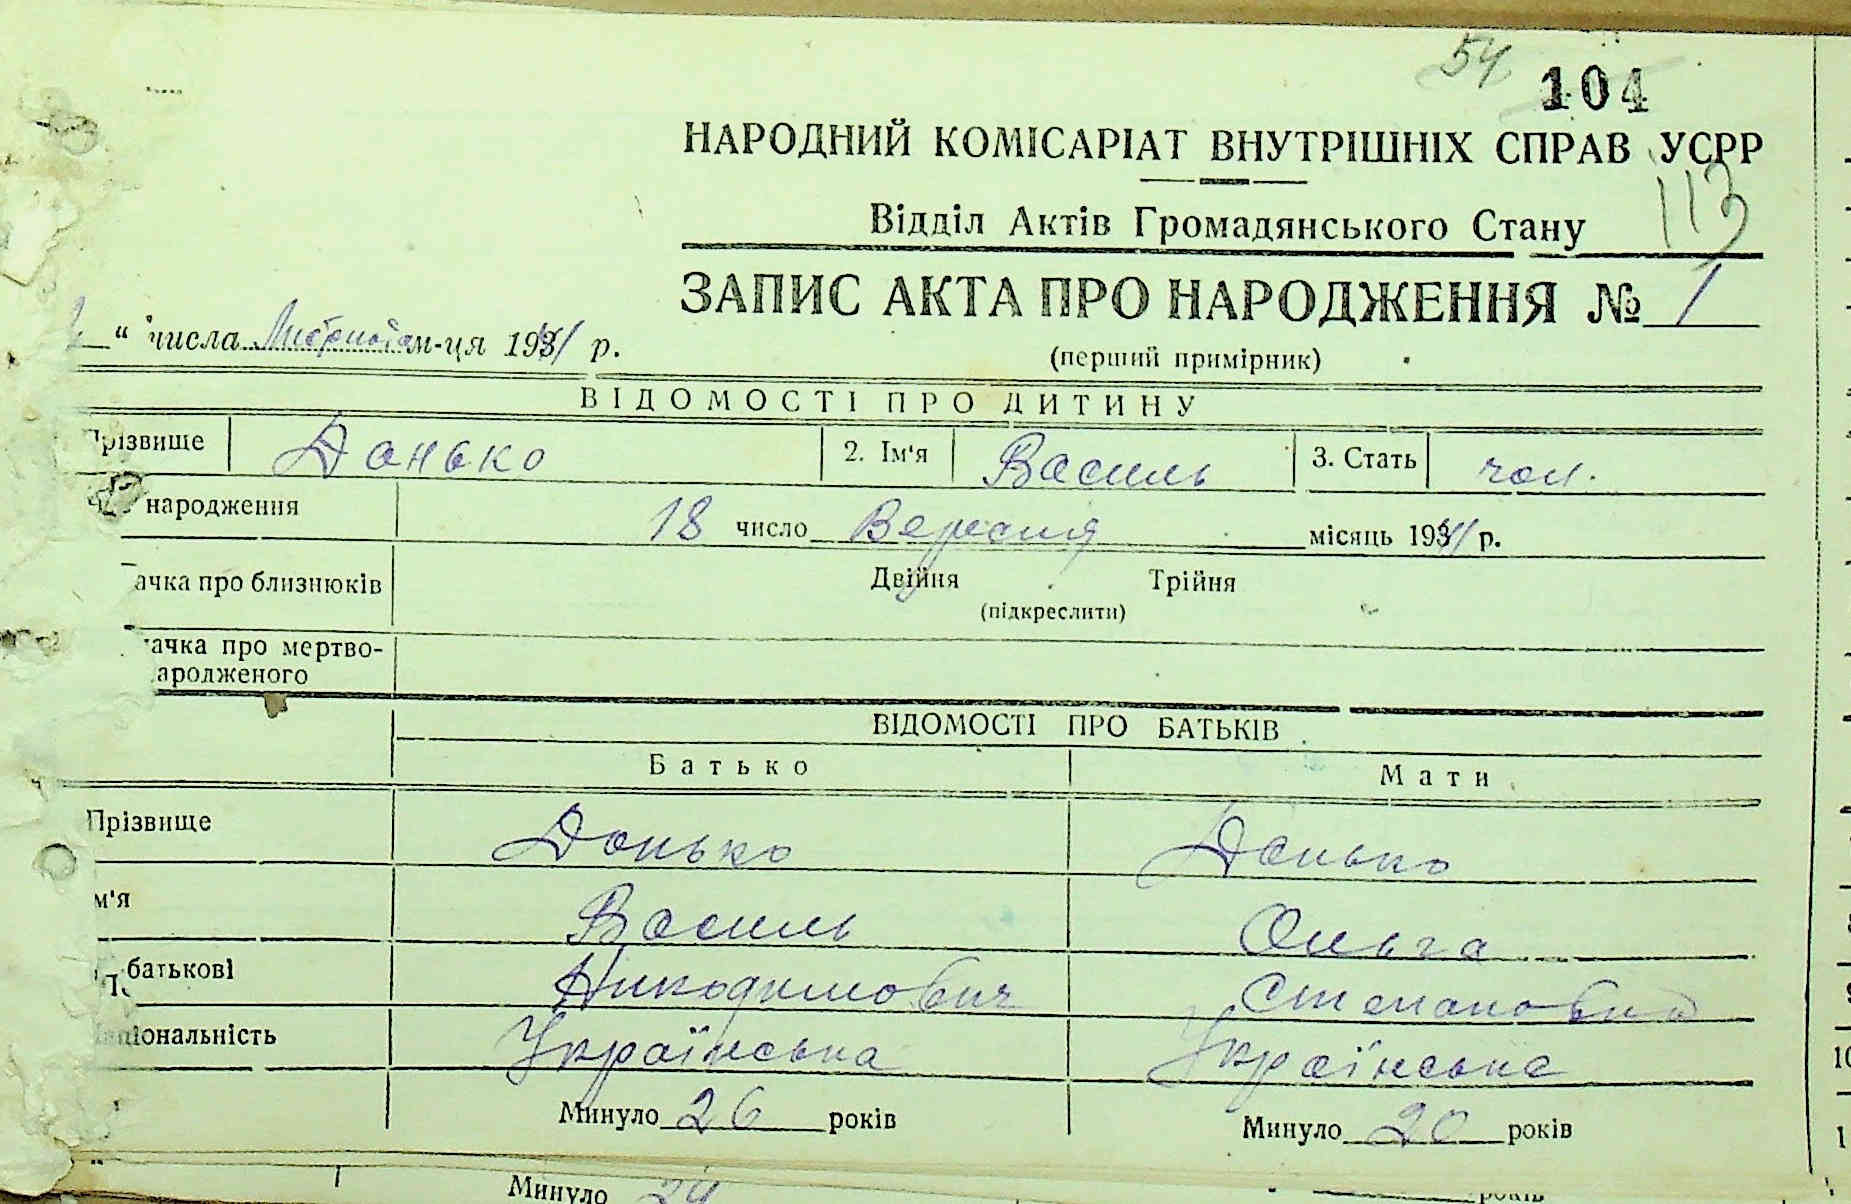 54 104
НАРОДНИЙ КОМІСАРІАТ ВНУТРІШНІХ СПРАВ УСРР
113
Відділ Актів Громадянського Стану
ЗАПИС АКТА ПРО НАРОДЖЕННЯ № 1
“ числа м-ця 1941 р.
(перший примірник)
ВІДОМОСТІ ПРО ДИТИНУ
Прізвище Донько 2. Ім'я Василь 3. Стать чол.
народження 18 число Вересня місяць 1941 р.
ачка про близнюків Двійня Трійня
(підкреслити)
ачка про мертво-
ародженого
ВІДОМОСТІ ПРО БАТЬКІВ
Батько Мати
Прізвище Донько Донько
м'я Василь Ольга
батькові Никодимович Степановна
ціональність Українська Українська
Минуло 26 років Минуло 20 років
10
1
Минуло 24 років